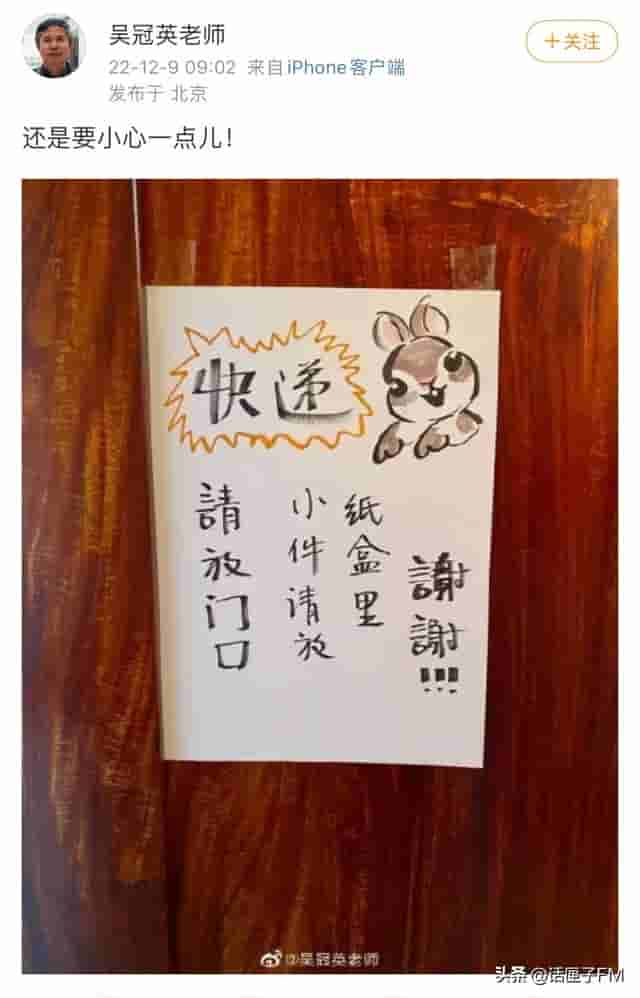 吴冠英老师
+关注
22-12-9 09:02 来自 iPhone客户端
发布于 北京
还是要小心一点儿！
快递
請放门口
小件请放
纸盒里
謝謝!!!
@吴冠英老师
头条 @话匣子FM